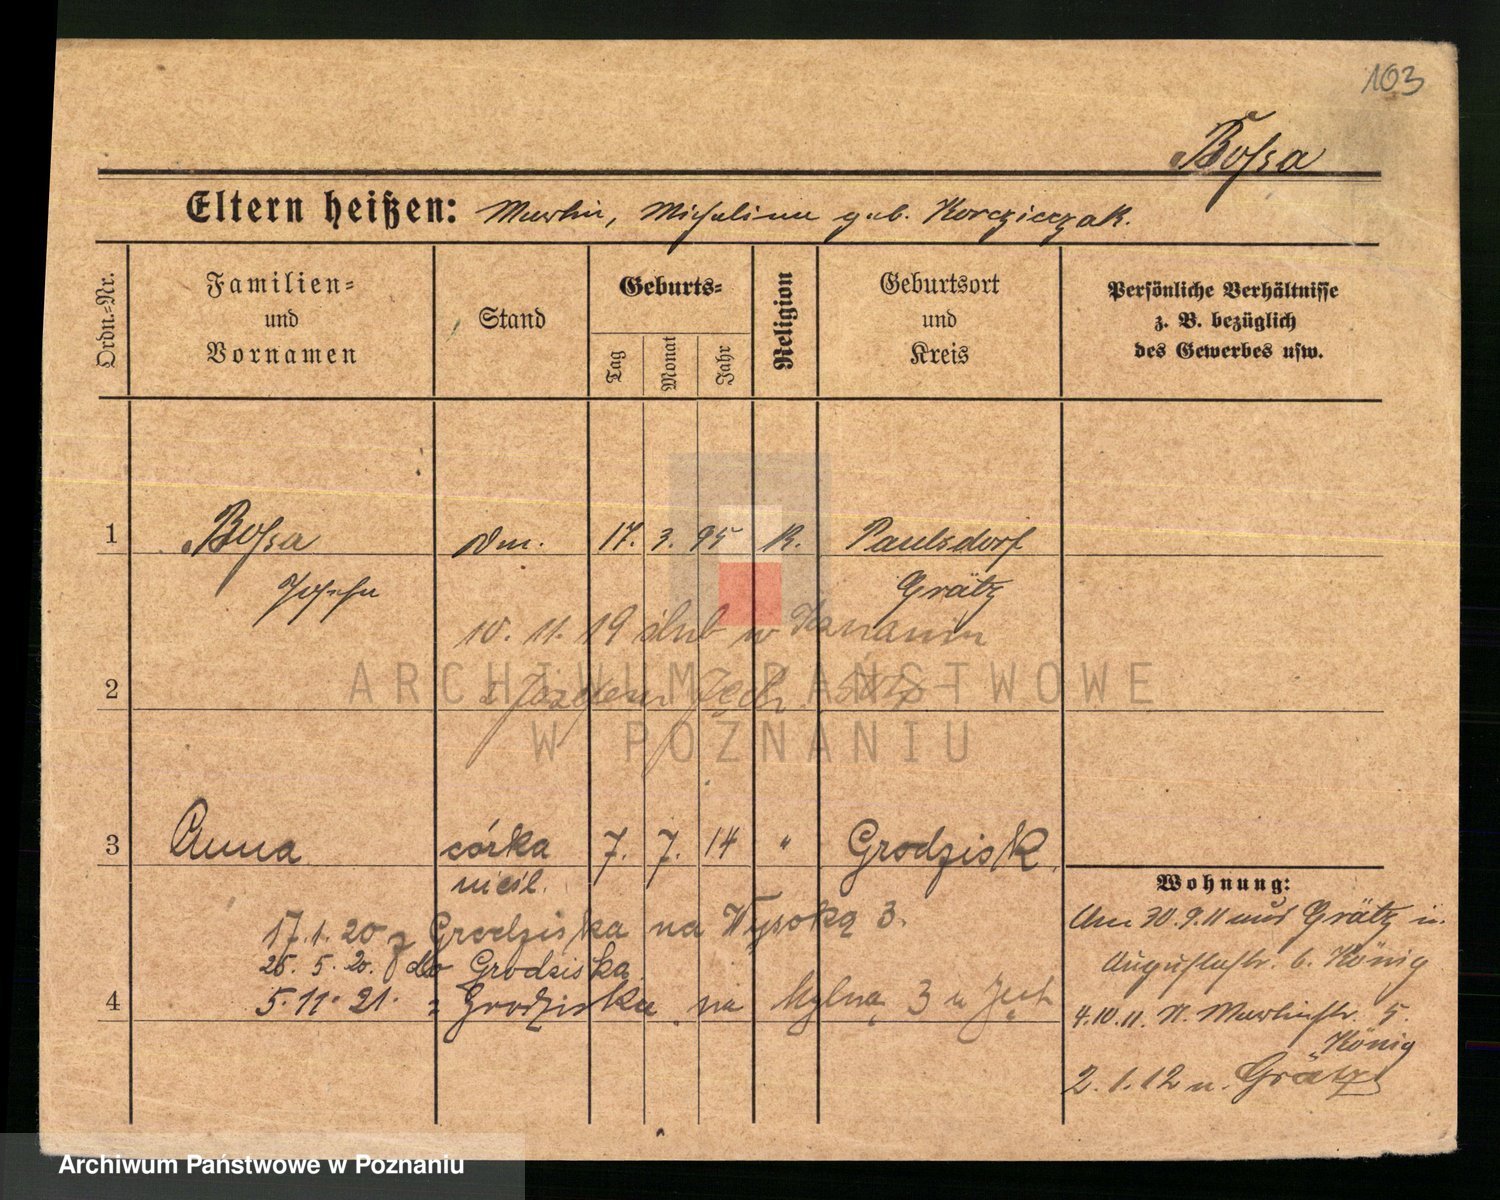 103
Bossa
Eltern heißen: Martin, Michalina geb. Korcziczak.
Ordn.-Nr.
Familien-
und
Vornamen
Stand
Geburts-
Tag
Monat
Jahr
Religion
Geburtsort
und
Kreis
Persönliche Verhältnisse
z. B. bezüglich
des Gewerbes usw.
1 Bossa 17. 3. 95 K. Paulsdorf
Josefa Grätz
10. 11. 19 ślub w
2 z Józefem
ARCHIWUM PAŃSTWOWE
W POZNANIU
3 Anna córka 7. 7. 14 " Grodzisk
nieśl.
Wohnung:
17.1.20 z Grodziska na Wysoką 3.
25. 5. 20. do Grodziska
4 5.11.21. z Grodziska na Młyńską 3 u
Am 30.9.11 aus Grätz n.
Augustastr. 6. König
4.10.11. N. Martinstr. 5.
König
2.1.12 n. Grätz
Archiwum Państwowe w Poznaniu